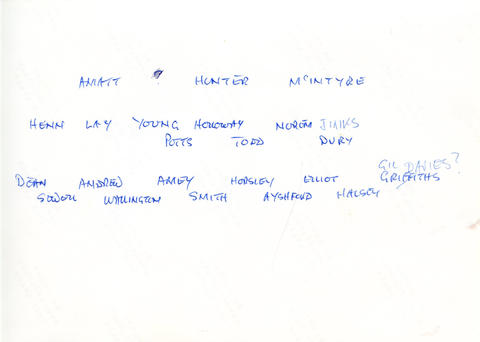 AMATT ? HUNTER MCINTYRE
HENN LAY YOUNG HOLLOWAY NOREM JINKS
POTTS TODD DURY
GIL DAVIES?
DEAN ANDREW AMEY HORSLEY ELLIOT GRIFFITHS
WALLINGTON SMITH AYSHFORD HALSEY